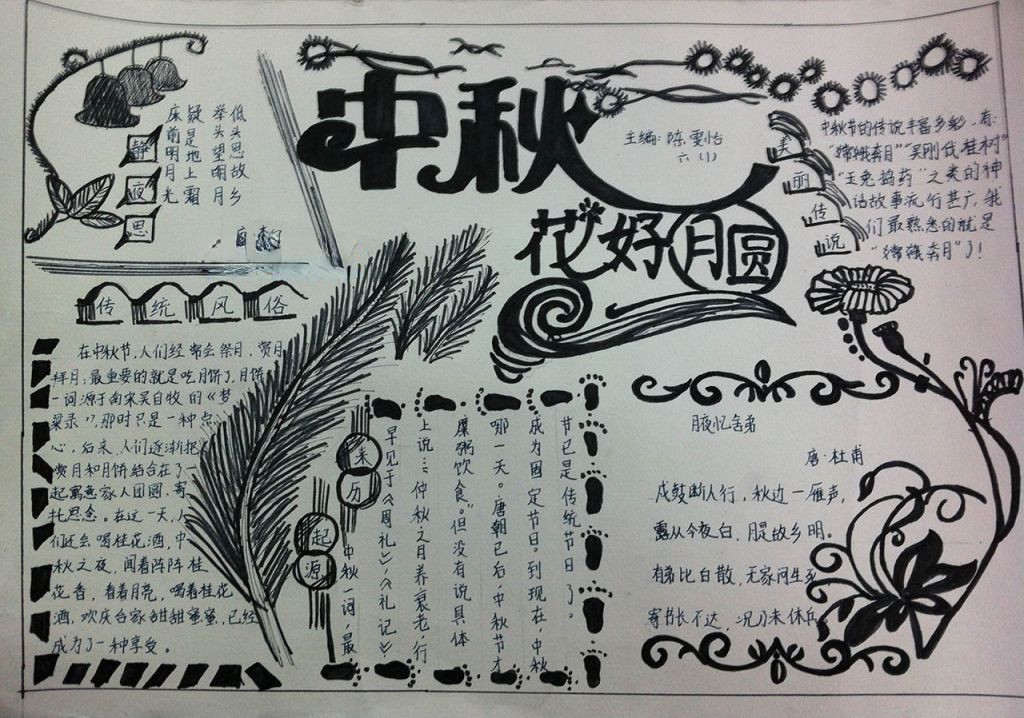 中秋
花好月圆
主编：陈雯怡
六（1）
静夜思
床前明月光
疑是地上霜
举头望明月
低头思故乡
传统风俗
在中秋节，人们经常会祭月、赏月
拜月，最重要的就是吃月饼了，月饼
一词源于南宋吴自牧的《梦
梁录》，那时只是一种点
心，后来人们逐渐把
赏月和月饼结合在了一
起寓意家人团圆，寄
托思念。在这一天，人
们还会喝桂花酒，中
秋之夜，闻着阵阵桂
花香，看着月亮，喝着桂花
酒，欢庆合家甜甜蜜蜜，已经
成为了一种享受。
来历
起源
中秋一词，最
早见于《周礼》，《礼记》
上说：“仲秋之月养衰老，行
糜粥饮食。”但没有说具体
哪一天。唐朝已后中秋节才
成为固定节日。到现在，中秋
节已是传统节日了。
美丽传说
中秋节的传说丰富多彩，有：
“嫦娥奔月”“吴刚伐桂树”
“玉兔捣药”之类的神
话故事流行甚广，我
们最熟悉的就是
“嫦娥奔月”了！
月夜忆舍弟
唐：杜甫
戍鼓断人行，秋边一雁声，
露从今夜白，月是故乡明。
有弟比白散，无家问生死
寄书长不达，况乃未休兵